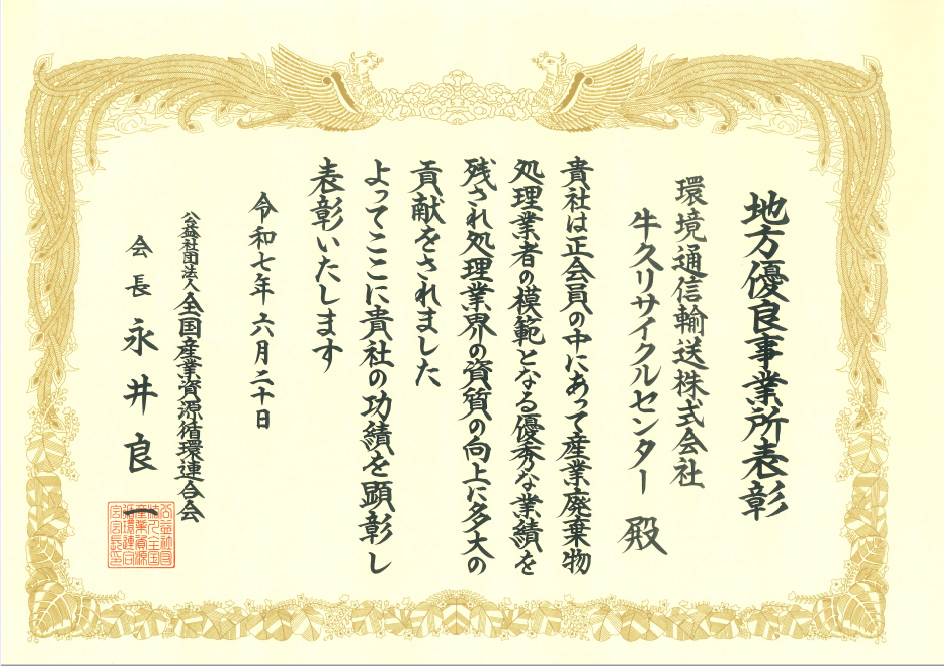 地方優良事業所表彰
環境通信輸送株式会社
牛久リサイクルセンター 殿
貴社は正会員の中にあって産業廃棄物
処理業者の模範となる優秀な業績を
残され処理業界の資質の向上に多大の
貢献をされました
よってここに貴社の功績を顕彰し
表彰いたします
令和七年六月二十日
公益社団法人全国産業資源循環連合会
会長 永井良一